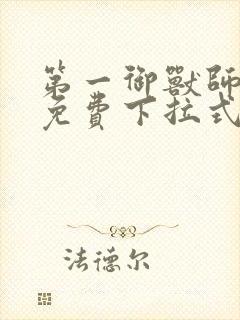 第一御獸師
免費下拉式
法德尔